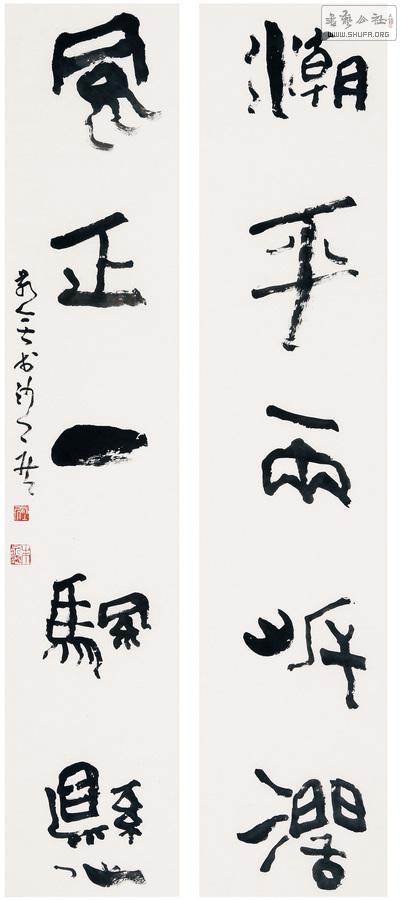 書藝公社
WWW.SHUFA.ORG
潮平兩岸濶
風正一颿懸